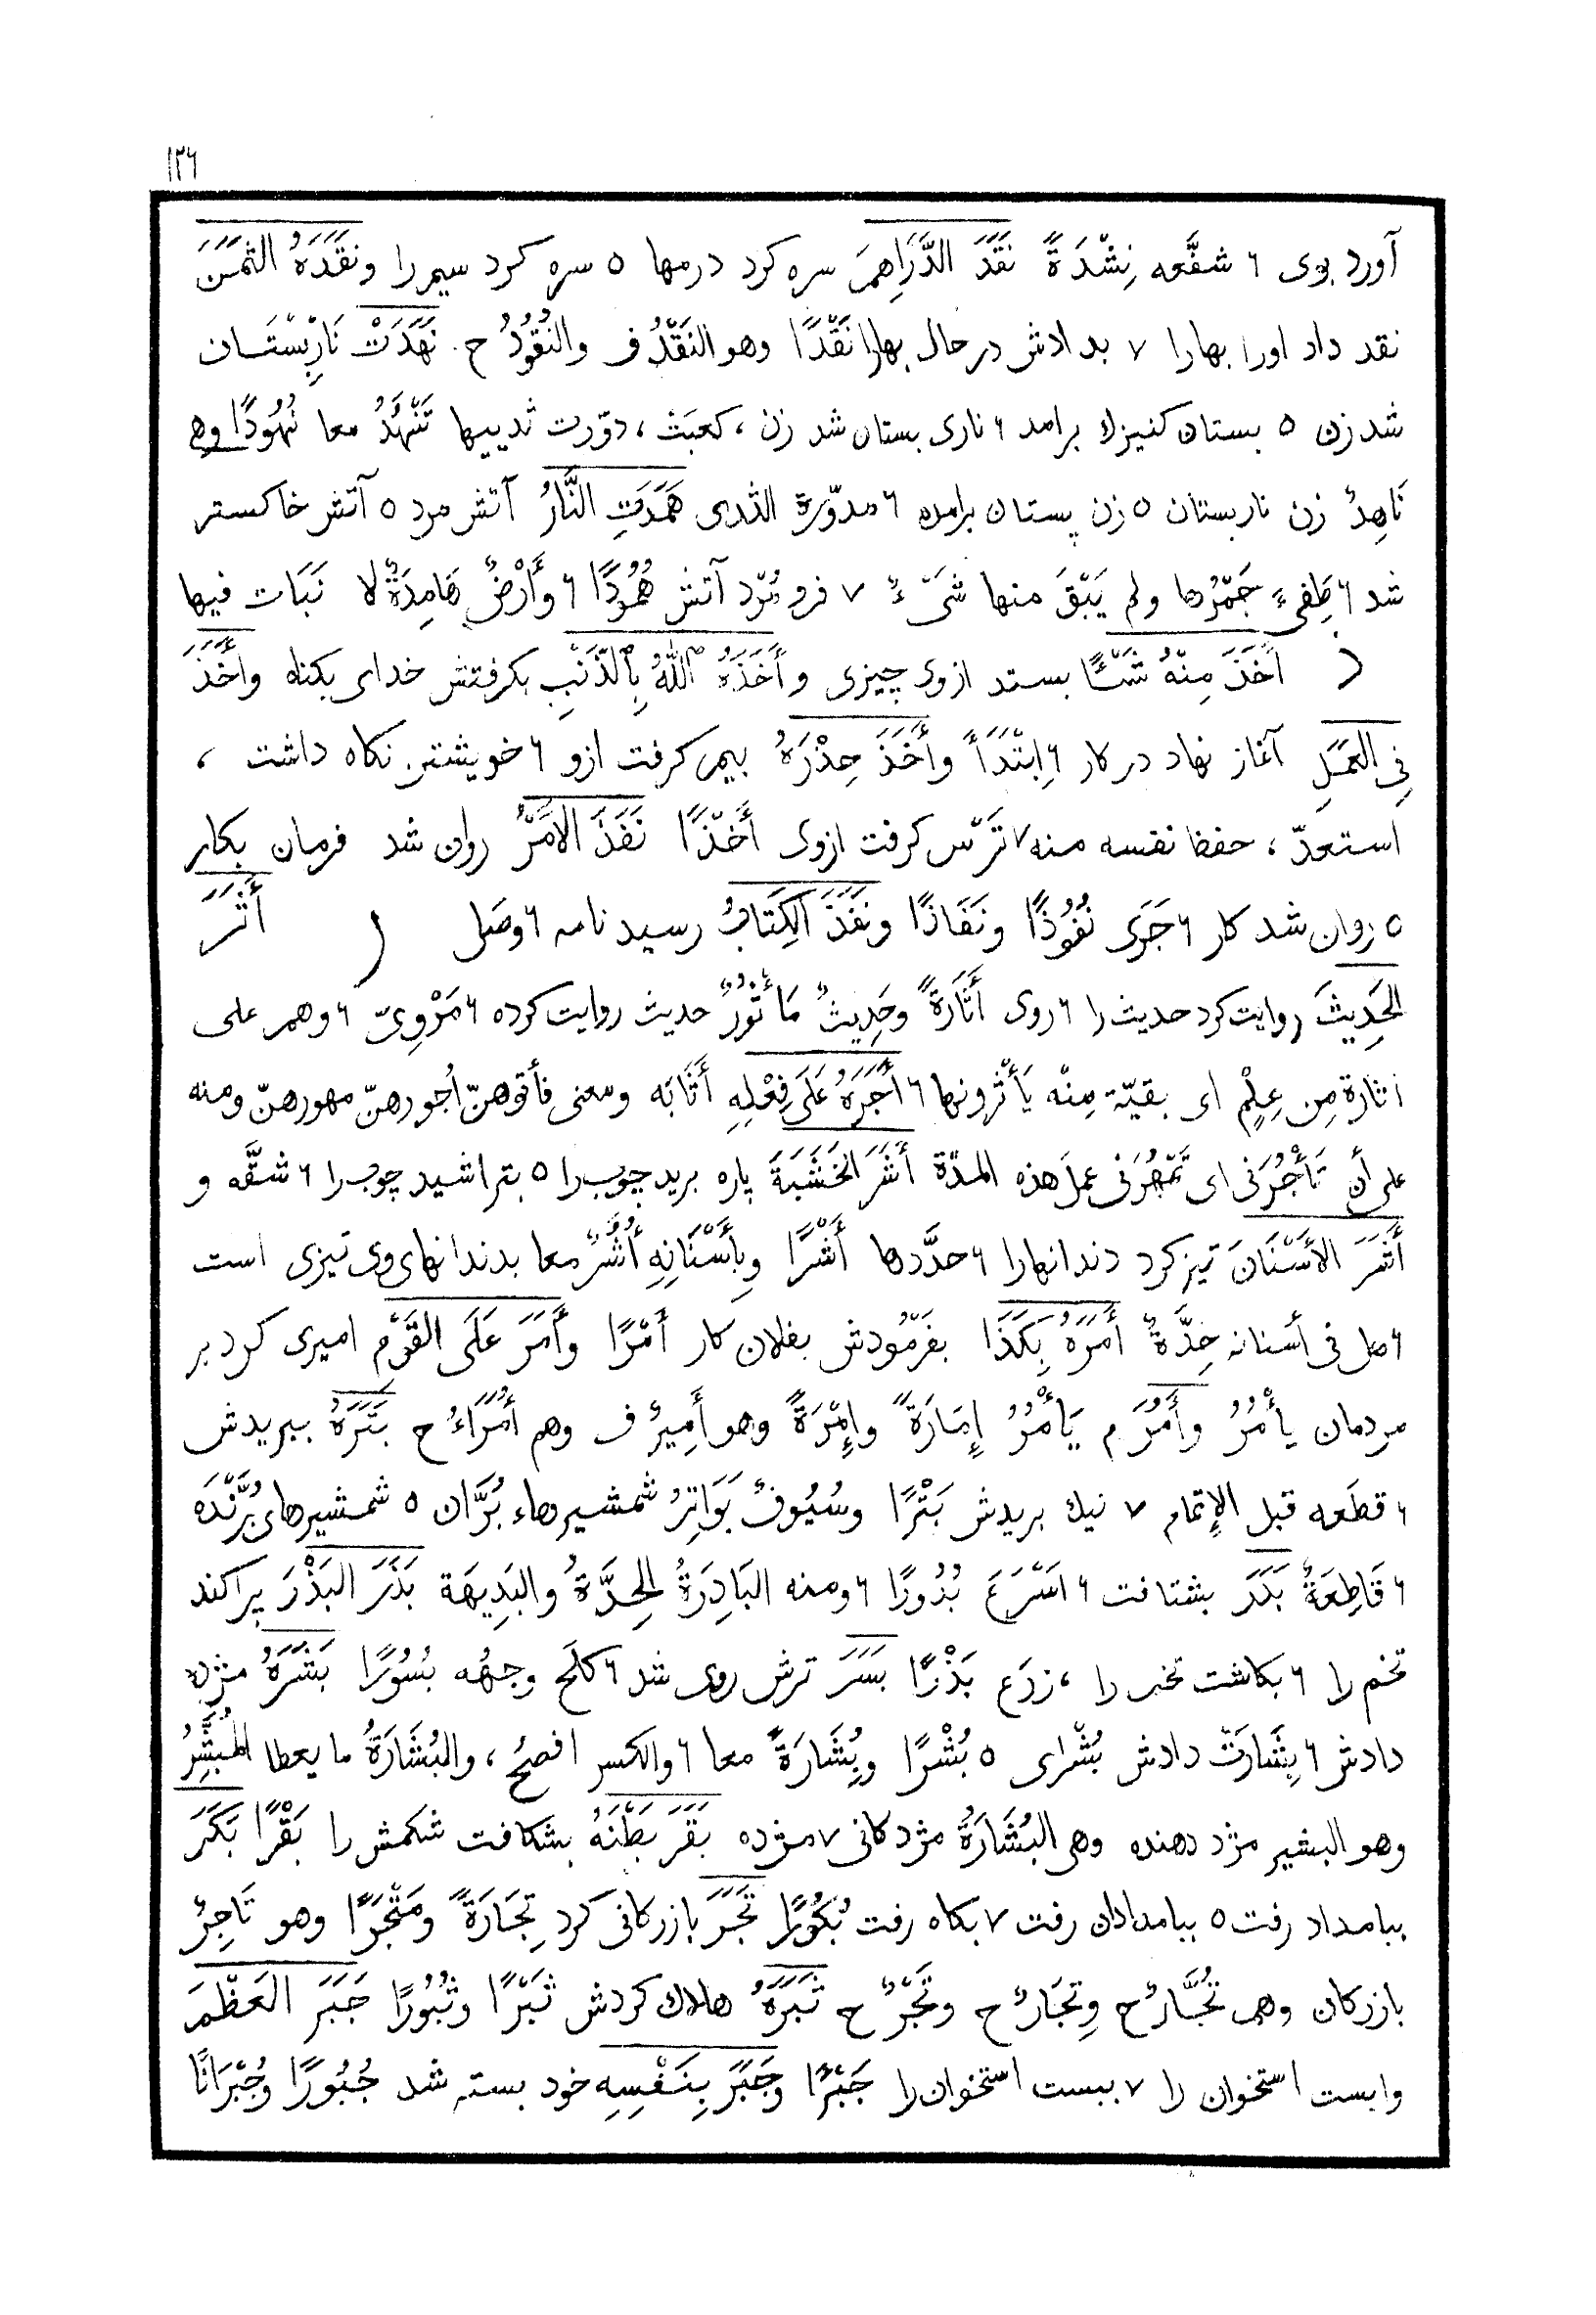 ١٢٦
آورد بوى ٦ شفّعه نِشْدَةً نَقَدَ الدَّرَاهِمَ سره كرد درمها ٥ سره كرد سيم را ونَقَدَهُ الثَمَنَ
نقد داد اورا بهارا ٧ بدلاش درحال بهارا نَقْدًا وهو النَقْدُ ف والنُقُودُ ح نَهَدَتْ نَارْبِسْتَان
شد زن ٥ بستان كنيزك برامد ٦ نارى بستان شد زن ، كعبَث ، دوّرت ثدييها تَنْهَُدُ معا نُهُودًا وهى
نَاهِدٌ زن ناربستان ٥ زن پستان برامده ٦ مدوّرة الثدى هَمَدَتِ النَّارُ آتش مرد ٥ آتش خاكستر
شد ٦ طَفِىءَ جَمْرُها ولم يَبْقَ منها شَىْءٌ ٧ فرو مُرْد آتش هُمُودًا ٦ وأَرْضٌ هَامِدَةٌ لا نَبَات فيها
ذ أَخَذَ مِنْهُ شَيْئًا بستد ازوى چيزى وأَخَذَهُ اللّٰهُ بِالذَّنْبِ بكرفتش خداى بكناه وأَخَذَ
فِى العَمَلِ آغاز نهاد در كار ٦ اِبْتَدَأَ وأَخَذَ حِذْرَهُ بيم كرفت ازو ٦ خويشتن نكاه داشت ،
استعدّ ، حفظ نفسه منه ٧ تَرْس كرفت ازوى أَخْذًا نَفَذَ الأَمْرُ روان شد فرمان بكار
٥ روان شد كار ٦ جَرَى نُفُوذًا ونَفَاذًا ونَفَذَ الكِتَابُ رسيد نامه ٦ وصَل ر أَثَرَ
الحَدِيثَ روايت كرد حديث را ٦ روى أَثَارَةً وحَدِيثٌ مَأْثُورٌ حديث روايت كرده ٦ مَرْوِىّ ٦ وهم على
أثارة مِن عِلْمٍ اى بقيّة مِنْه يَأْثرونها ٦ أَجَرَهُ عَلَى فِعْلِهِ أَثَابَه ومعنى فأتوهنّ اُجورهنّ مهورهنّ ومنه
على أن تَأْجُرَنى اى تَمْهُرَنى عمل هذه المدّة أَشَرَ الخَشَبَةَ پاره بريد چوب را ٥ بتراشيد چوب را ٦ شقّه و
أَشَرَ الأَسْنَانَ تيز كرد دندانهارا ٦ حدَّدها أَشْرًا وبِأَسْنَانِهِ أُشُرٌ معا بدندانهاى وى تيزى است
٦ صل فى أسنانه حِدَّةٌ أَمَرَهُ بِكَذَا بفَرمُودش بفلان كار أَمْرًا وأَمَرَ عَلَى القَوْمِ اميرى كرد بر
مردمان يأْمُرُ وأَمُرَ م يَأْمُرُ إِمَارَةً وإِمْرَةً وهو أَمِيرٌ ف وهم أُمَرَاءُ ح بَتَرَهُ ببريدش
٦ قطَعه قبل الإتمام ٧ نيك بريدش بَتْرًا وسُيُوفٌ بَوَاتِرُ شمشيرهاء بُرَّان ٥ شمشيرهاى بُرَّنْدَه
٦ قَاطِعَةٌ بَدَرَ بشتافت ٦ اَسْرَعَ بُدُورًا ٦ ومنه البَادِرَةُ لِحِدَّةُ والبَدِيهَة بَذَرَ البَذْرَ پراكند
تخم را ٦ بكاشت تخم را ، زرَع بَذْرًا بَسَرَ ترش روى شد ٦ كلَح وجهُه بُسُورًا بَشَرَهُ مژده
دادش ٦ بِشَارَتْ دادش بُشْراى ٥ بُشْرًا وبِشَارَةً معا ٦ والكسر افصَح ، والبُشَارَةُ ما يعطا المُبَشِّرُ
وهو البشير مژد دهنده وهى البُشَارَةُ مژدكانى ٧ مژده بَقَرَ بَطْنَهُ بشكافت شكمش را بَقْرًا بَكَرَ
ببامداد رفت ٥ ببامدادان رفت ٧ بكاه رفت بُكُورًا تَجَرَ بازركانى كرد تِجَارَةً ومَتْجَرًا وهو تَاجِرٌ
بازركان وهم تُجَّارٌ ح وتِجَارٌ ح وتَجْرٌ ح ثَبَرَهُ هلاك كردش ثَبْرًا وثُبُورًا جَبَرَ العَظْمَ
وابست استخوان را ٧ ببست استخوان را جَبْرًا وجَبَرَ بِنَفْسِهِ خود بسته شد جُبُورًا وجُبْرَانًا